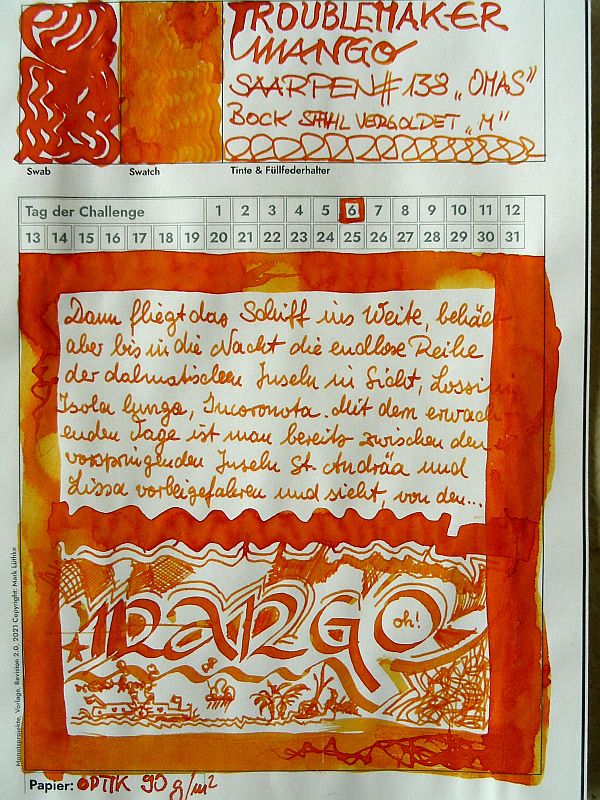 TROUBLEMAKER
MANGO
SAARPEN# 138 „OMAS"
BOCK STAHL VERGOLDET „M"
Swab Swatch Tinte & Füllfederhalter
Tag der Challenge 1 2 3 4 5 6 7 8 9 10 11 12
13 14 15 16 17 18 19 20 21 22 23 24 25 26 27 28 29 30 31
Dann fliegt das Schiff ins Weite, behält
aber bis in die Nacht die endlose Reihe
der dalmatischen Inseln in Sicht, Lossini
Isola lunga, Incoronota. Mit dem erwach-
enden Tage ist man bereits zwischen den
vorspringenden Inseln St. Andräa und
Lissa vorbeigefahren und sieht, von den...
MANGO
oh!
Monatsprojekte, Vorlage, Revision 2.0, 2021 Copyright: Mark Lüthke
Papier: OPTIK 90 g/m²